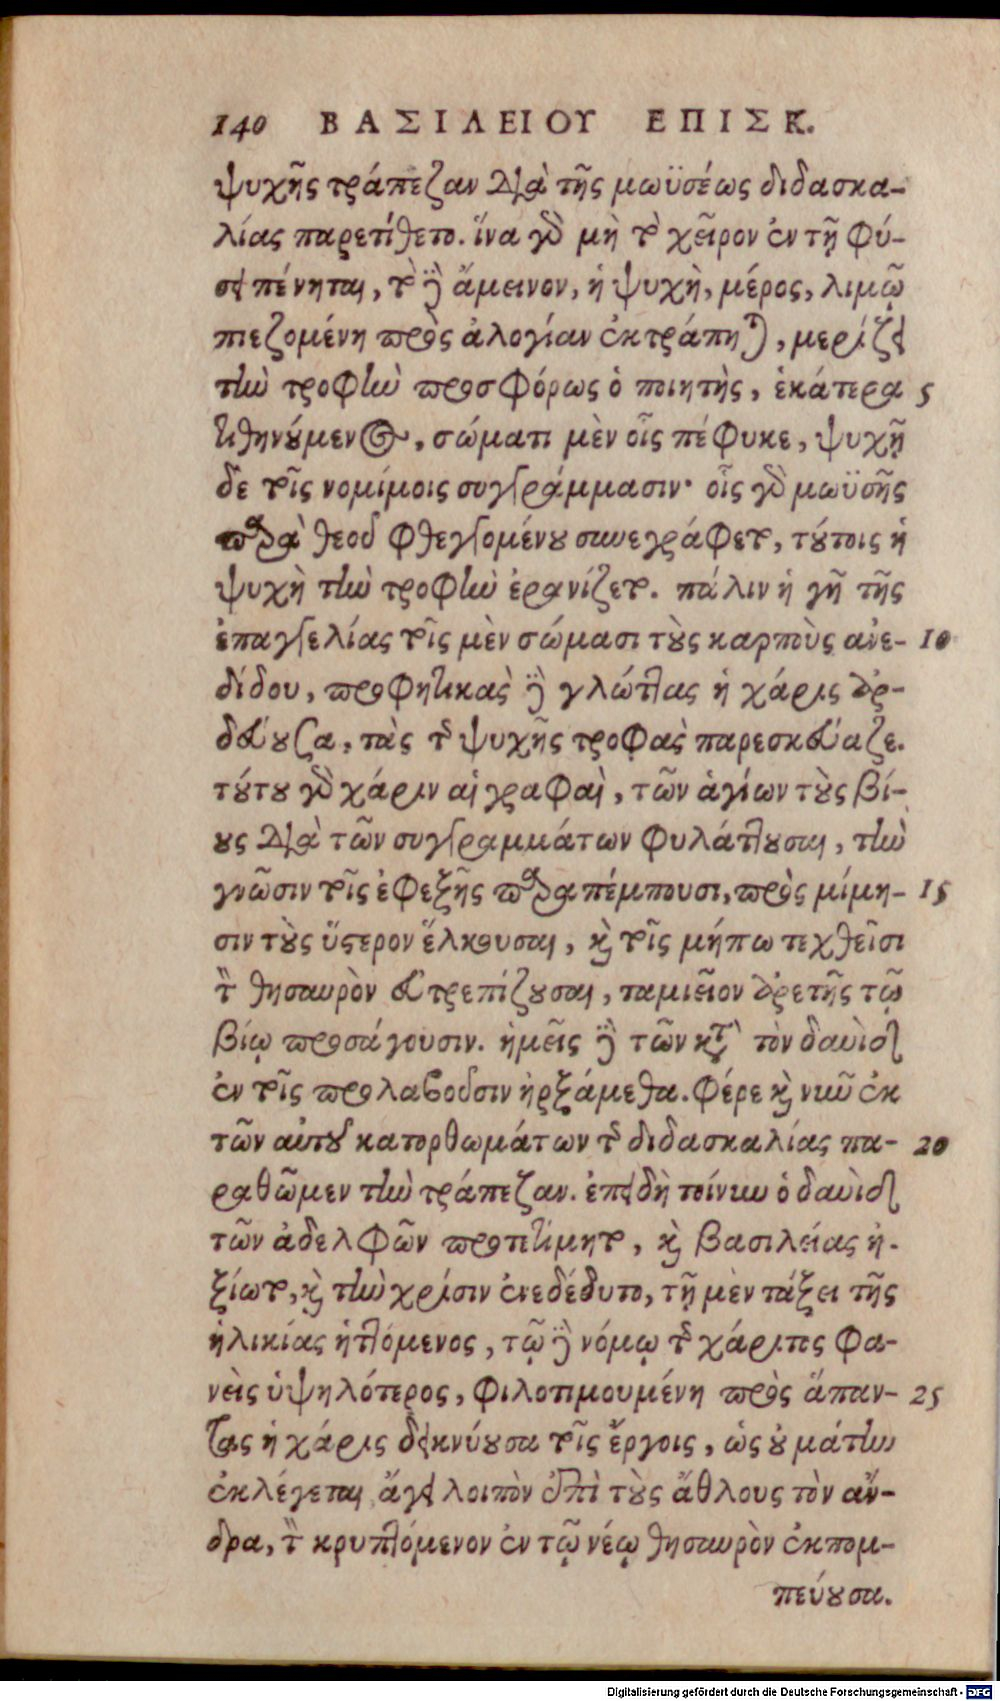 140 ΒΑΣΙΛΕΙΟΥ ΕΠΙΣΚ.
ψυχῆς τράπεζαν διὰ τῆς μωϋσέως διδασκα-
λίας παρετίθετο. ἵνα γὰρ μὴ τὸ χεῖρον ἐν τῇ φύ-
σει πένηται, τὸ δὲ ἄμεινον, ἡ ψυχὴ, μέρος, λιμῷ
πιεζομένη πρὸς ἀλογίαν ἐκτράπηται, μερίζει
τὴν τροφὴν προσφόρως ὁ ποιητὴς, ἑκάτερα 5
τιθηνούμενος, σώματι μὲν οἷς πέφυκε, ψυχῇ
δὲ τοῖς νομίμοις συγγράμμασιν· οἷς γὰρ μωϋσῆς
παρὰ θεοῦ φθεγγομένου συνεγράφετο, τούτοις ἡ
ψυχὴ τὴν τροφὴν ἐρανίζετο. πάλιν ἡ γῆ τῆς
ἐπαγγελίας τοῖς μὲν σώμασι τοὺς καρποὺς ἀνε- 10
δίδου, προφητικὰς δὲ γλώττας ἡ χάρις ἀρ-
δεύουσα, τὰς τῆς ψυχῆς τροφὰς παρεσκεύαζε.
τούτου γὰρ χάριν αἱ γραφαὶ, τῶν ἁγίων τοὺς βί-
ους διὰ τῶν συγγραμμάτων φυλάττουσαι, τὴν
γνῶσιν τοῖς ἐφεξῆς παραπέμπουσι, πρὸς μίμη- 15
σιν τοὺς ὕστερον ἕλκουσαι, καὶ τοῖς μήπω τεχθεῖσι
τὸν θησαυρὸν εὐτρεπίζουσαι, ταμιεῖον ἀρετῆς τῷ
βίῳ προσάγουσιν. ἡμεῖς δὲ τῶν κατὰ τὸν δαυὶδ
ἐν τοῖς προλαβοῦσιν ἠρξάμεθα. φέρε καὶ νῦν ἐκ
τῶν αὐτοῦ κατορθωμάτων τῆς διδασκαλίας πα- 20
ραθῶμεν τὴν τράπεζαν. ἐπειδὴ τοίνυν ὁ δαυὶδ
τῶν ἀδελφῶν προτετίμητο, καὶ βασιλείας ἠ-
ξίωτο, καὶ τὴν χρίσιν ἐνεδέδυτο, τῇ μὲν τάξει τῆς
ἡλικίας ἡττόμενος, τῷ δὲ νόμῳ τῆς χάριτος φα-
νεὶς ὑψηλότερος, φιλοτιμουμένη πρὸς ἅπαν- 25
τας ἡ χάρις δεικνύουσα τοῖς ἔργοις, ὡς οὐ μάτην
ἐκλέγεται, ἄγει λοιπὸν ἐπὶ τοὺς ἄθλους τὸν ἄν-
δρα, τὸν κρυπτόμενον ἐν τῷ νέῳ θησαυρὸν ἐκπομ-
πεύουσα.
Digitalisierung gefördert durch die Deutsche Forschungsgemeinschaft - DFG